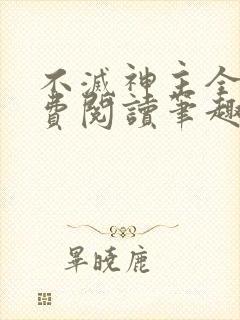 不滅神主全
費閱讀筆趣
畢曉鹿